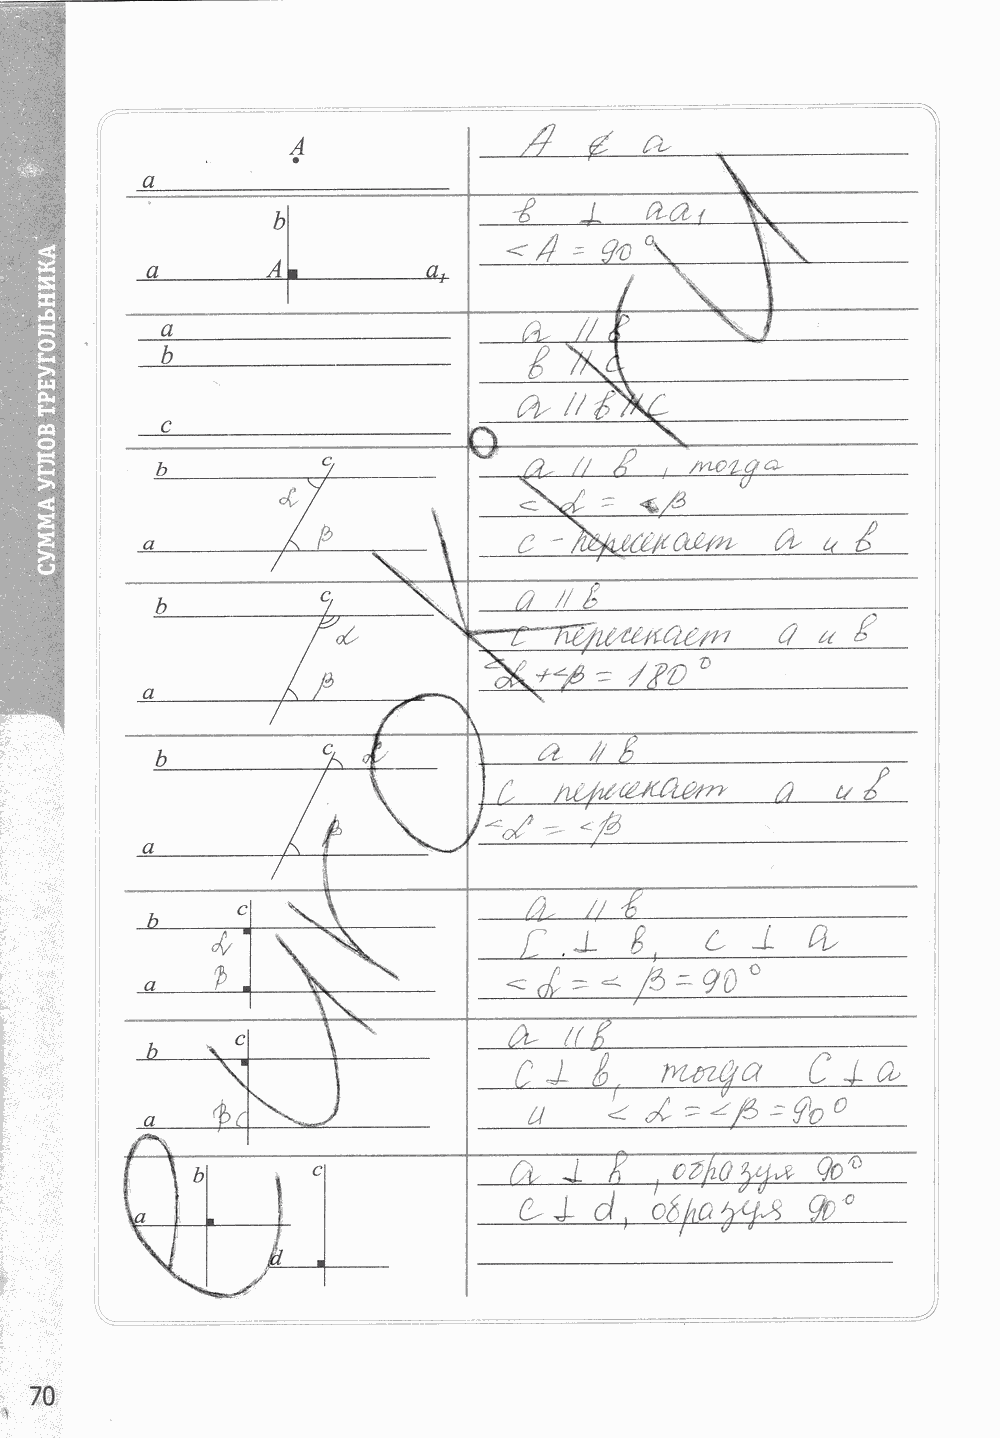 СУММА УГЛОВ ТРЕУГОЛЬНИКА
A
a
A ∉ a
b
a A a₁
в ⊥ аа₁
< A = 90°
a
b
c
а || в
в || с
а || в || с
b c
α
β
a
а || в, тогда
< α = < β
с - пересекает а и в
b c
α
β
a
а || в
с пересекает а и в
< α + < β = 180°
b c α
β
a
а || в
с пересекает а и в
< α = < β
c
b
α
β
a
а || в
с ⊥ в, с ⊥ а
< α = < β = 90°
c
b
β
a
а || в
с ⊥ в, тогда с ⊥ а
и < α = < β = 90°
b c
a
d
а ⊥ в, образуя 90°
с ⊥ d, образуя 90°
70